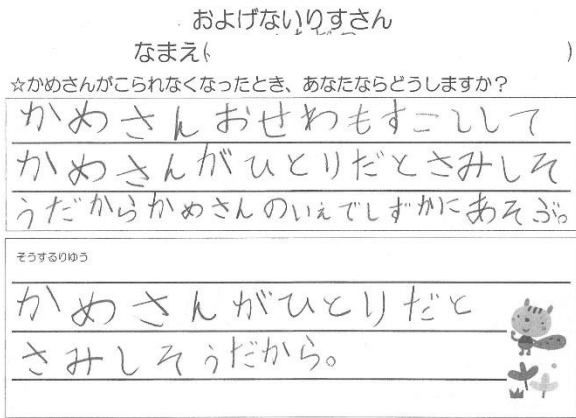 およげないりすさん
なまえ(　　　　)
☆かめさんがこられなくなったとき、あなたならどうしますか？
かめさんおせわもすこしして
かめさんがひとりだとさみしそ
うだからかめさんのいえでしずかにあそぶ。
そうするりゆう
かめさんがひとりだと
さみしそうだから。